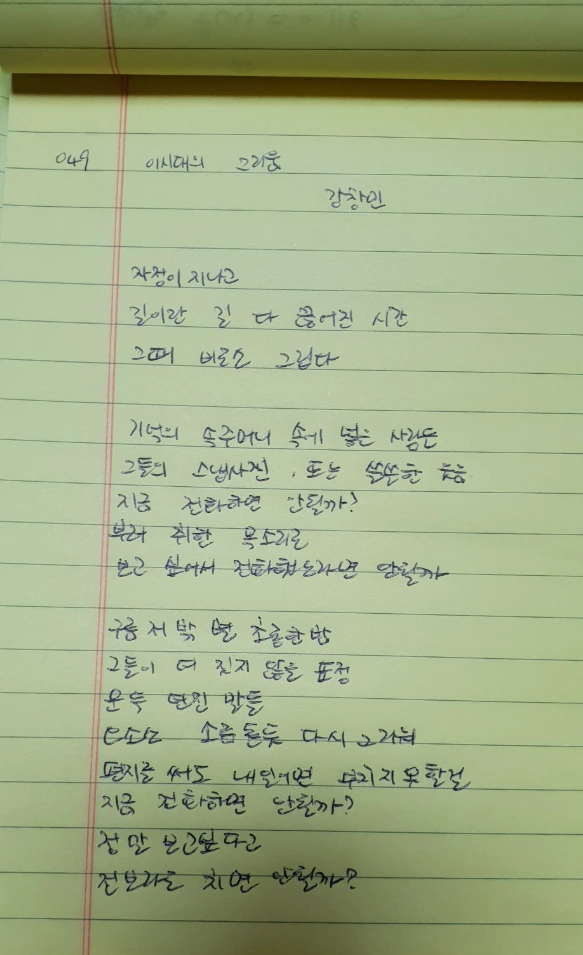 049 이시대의 그리움
강창민
자정이 지나고
길이란 길 다 끊어진 시간
그때 비로소 그립다
기억의 속주머니 속에 넣은 사람들
그들의 스냅사진, 또는 쓸쓸한 웃음
지금 전화하면 안될까?
부러 취한 목소리로
보고 싶어서 전화했노라면 안될까
구름 저 밖 별 초롱한 밤
그들이 더 짓지 않을 표정
문득 던진 말들
소름 돋듯 다시 그리워
편지를 써도 내일이면 부치지 못할걸
지금 전화하면 안될까?
정말 보고싶다고
전보라도 치면 안될까?